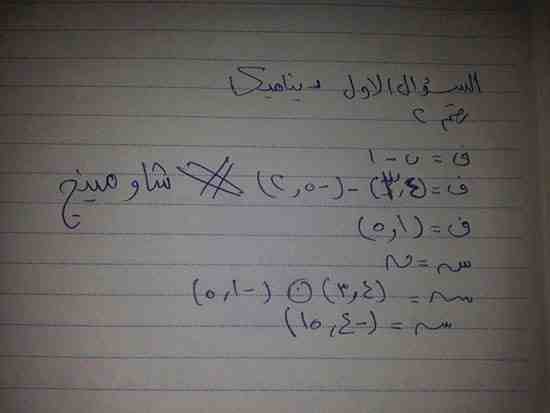 السؤال الاول ديناميكا
رقم ٢
ف = ب - ا
ف = (٣,٤) - (-٥,٢) شاومينج
ف = (٥,١)
(٣,٤) ⊙ (-١,٥)
= (-٤,١٥)